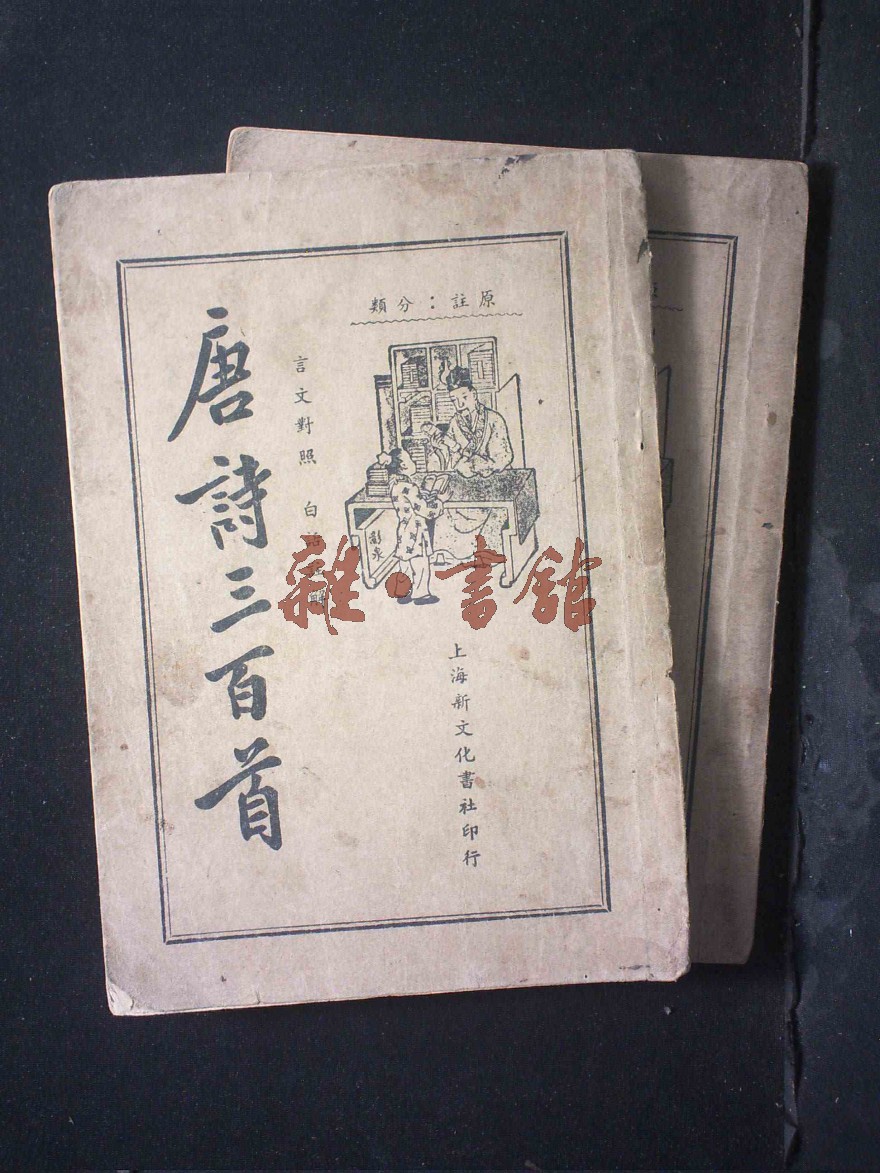 原註：分類
唐詩三百首
言文對照 白話註解
上海新文化書社印行
雜·書館